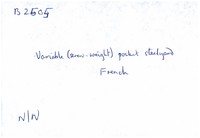 B 2505
Variable (screw-weight) pocket steelyard
French
N/N